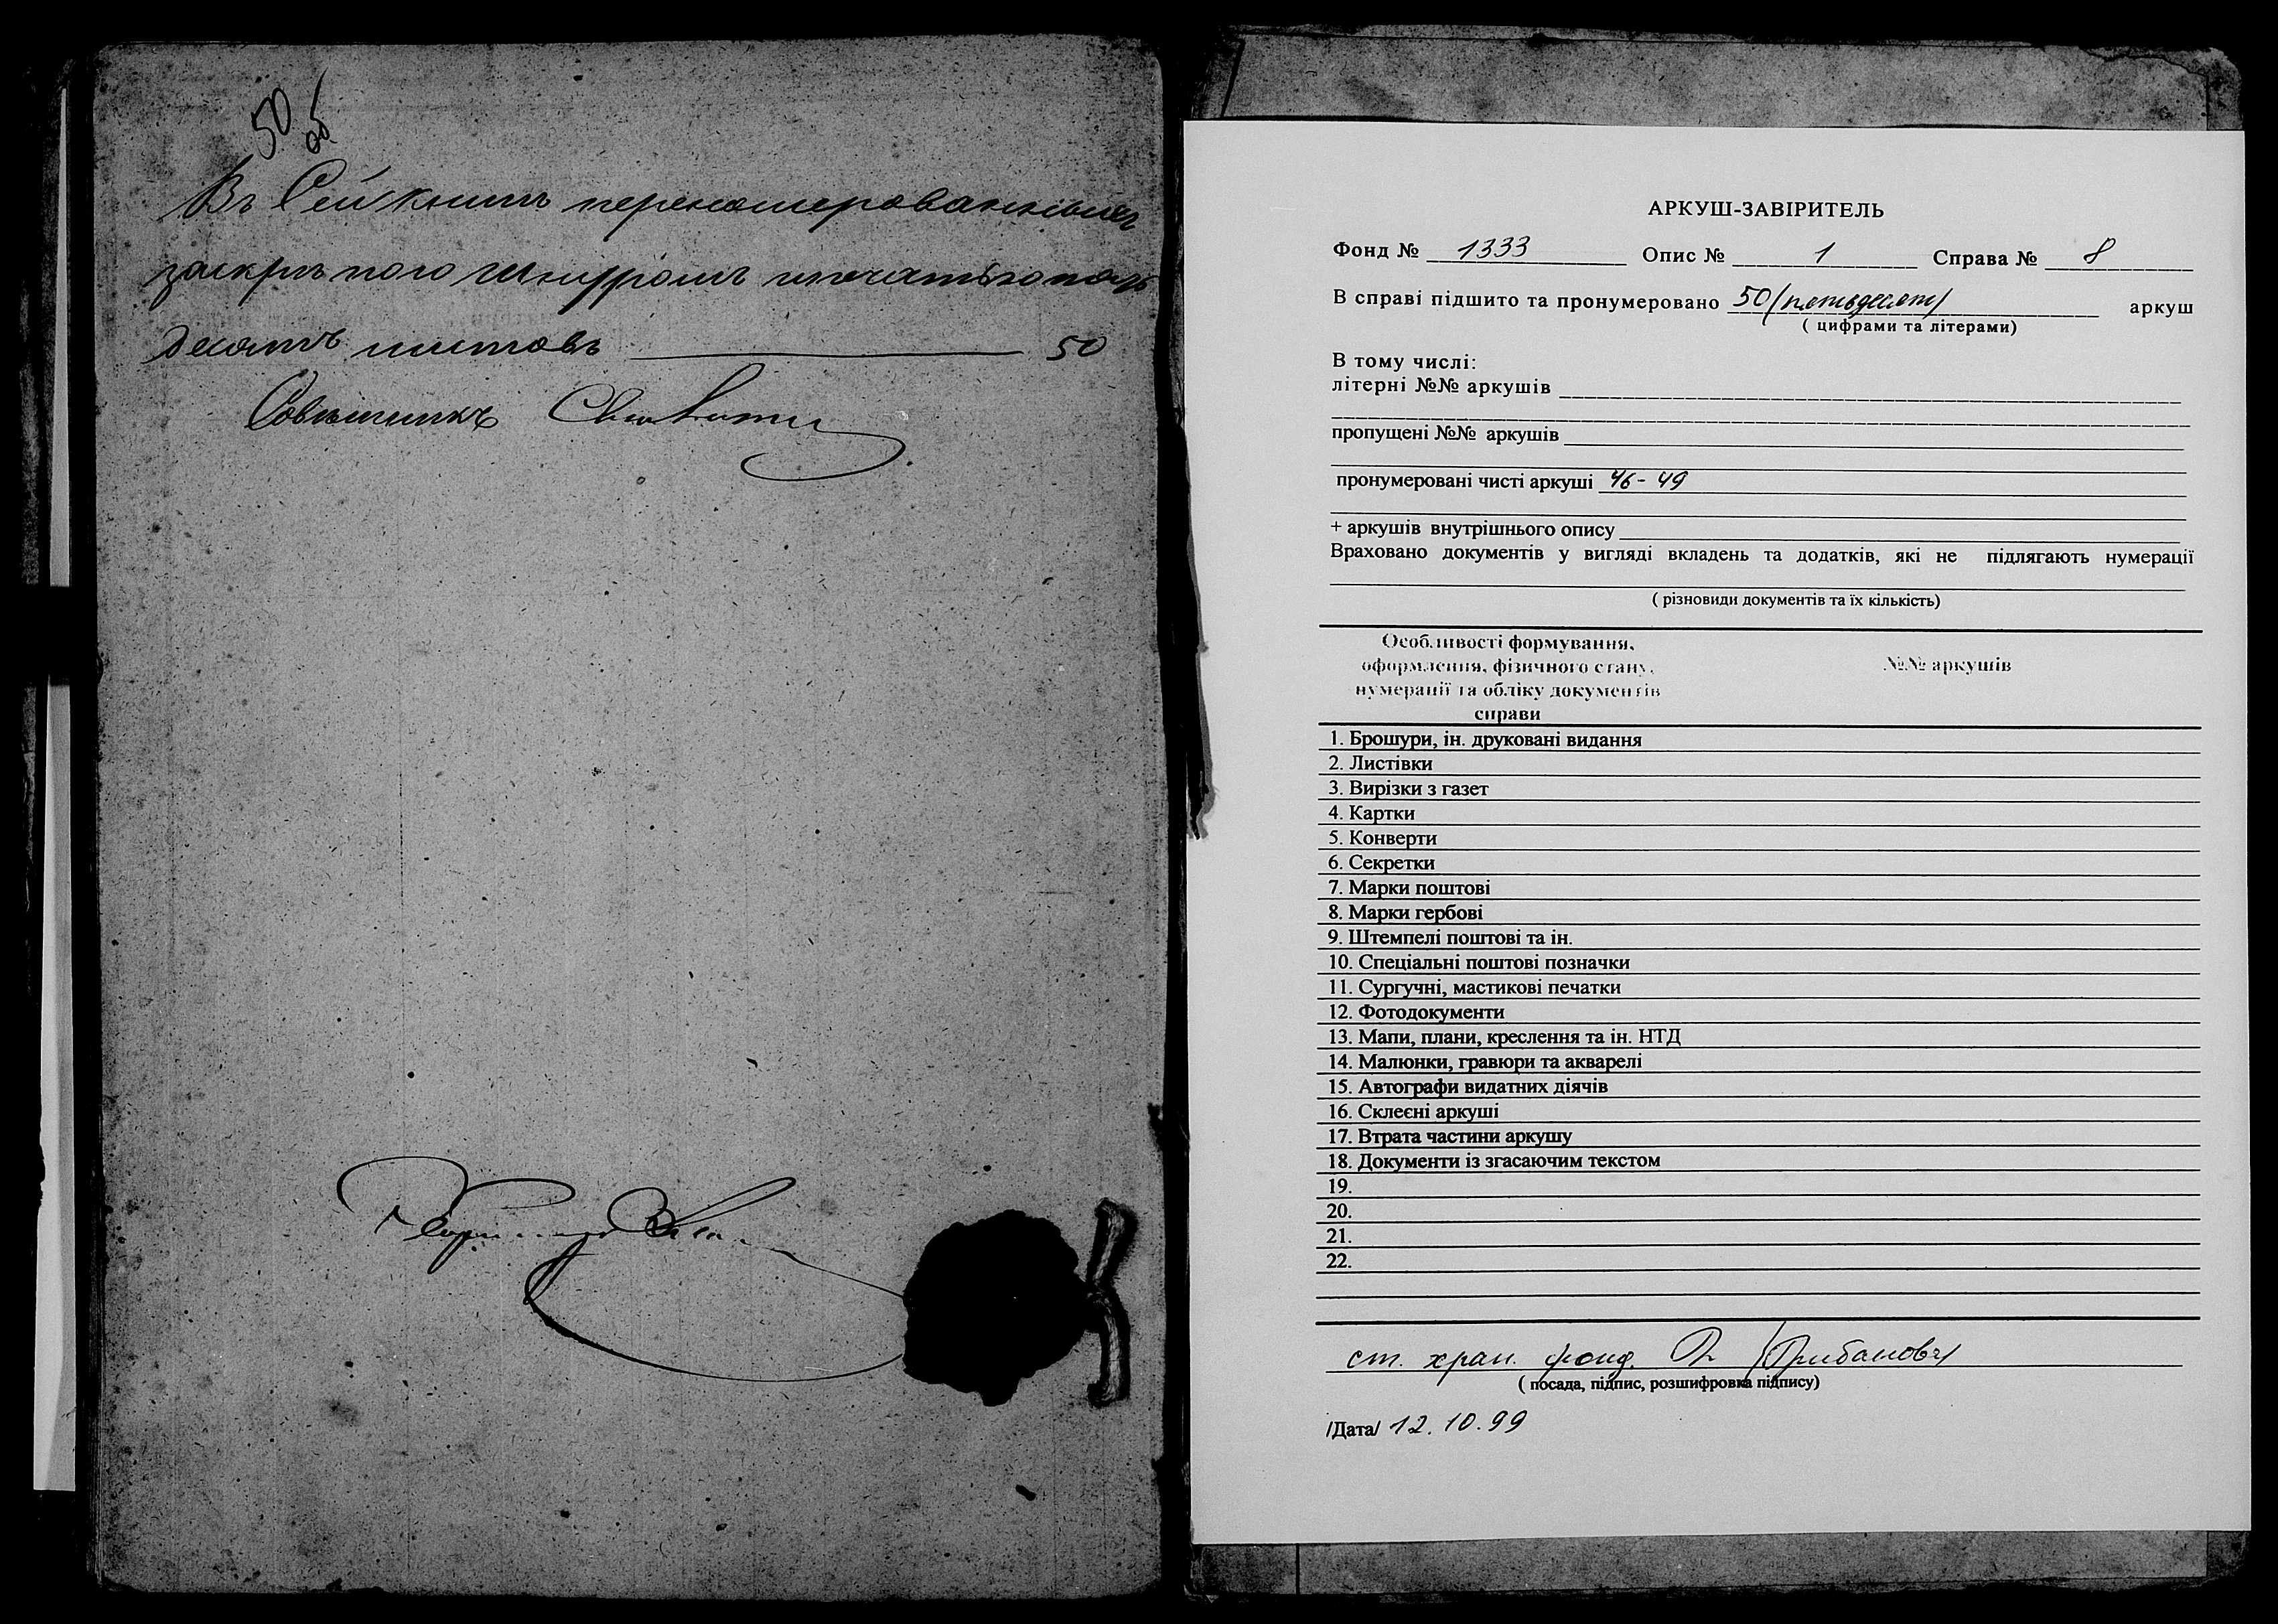 50 об
Въ Сей книгѣ переномерованныхъ
закрѣпого шнуромъ ипечатьюпядь
десятъ листовъ 50
Совѣтникъ
АРКУШ-ЗАВІРИТЕЛЬ
Фонд № 1333 Опис № 1 Справа № 8
В справі підшито та пронумеровано 50 (пятьдесят) аркуш
( цифрами та літерами)
В тому числі:
літерні №№ аркушів
пропущені №№ аркушів
пронумеровані чисті аркуші 46-49
+ аркушів внутрішнього опису
Враховано документів у вигляді вкладень та додатків, які не підлягають нумерації
( різновиди документів та їх кількість)
Особливості формування,
оформлення, фізичного стану,
№№ аркушів
нумерації та обліку документів
справи
1. Брошури, ін. друковані видання
2. Листівки
3. Вирізки з газет
4. Картки
5. Конверти
6. Секретки
7. Марки поштові
8. Марки гербові
9. Штемпелі поштові та ін.
10. Спеціальні поштові позначки
11. Сургучні, мастикові печатки
12. Фотодокументи
13. Мапи, плани, креслення та ін. НТД
14. Малюнки, гравюри та акварелі
15. Автографи видатних діячів
16. Склеєні аркуші
17. Втрата частини аркушу
18. Документи із згасаючим текстом
19.
20.
21.
22.
ст. хран. фонд.
( посада, підпис, розшифровка підпису)
/Дата/ 12.10.99